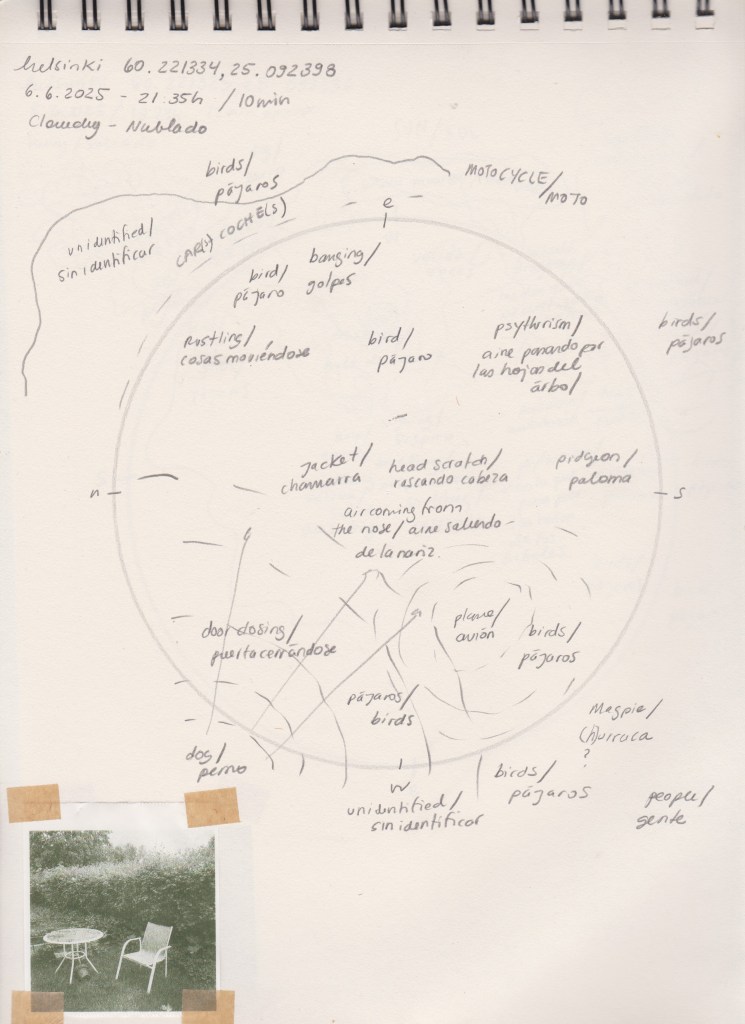 Helsinki 60.221334, 25.092398
6.6.2025 - 21:35h / 10min
Cloudy - Nublado
birds/
pájaros
MOTOCYCLE/
MOTO
unidentified/
sin identificar
CAR(S) COCHE(S)
e
bird/
pájaro
banging/
golpes
Rustling/
cosas moviéndose
bird/
pájaro
psythurism/
aire pasando por
las hojas del
árbol
birds/
pájaros
n
s
jacket/
chamarra
head scratch/
rascando cabeza
pidgeon/
paloma
air coming from
the nose/ aire saliendo-
de la nariz.
door closing/
puerta cerrándose
plane/
avión
birds/
pájaros
pájaros/
birds
Magpie/
(h)urraca
?
dog/
perro
w
unidntified/
sin identificar
birds/
pájaros
people/
gente